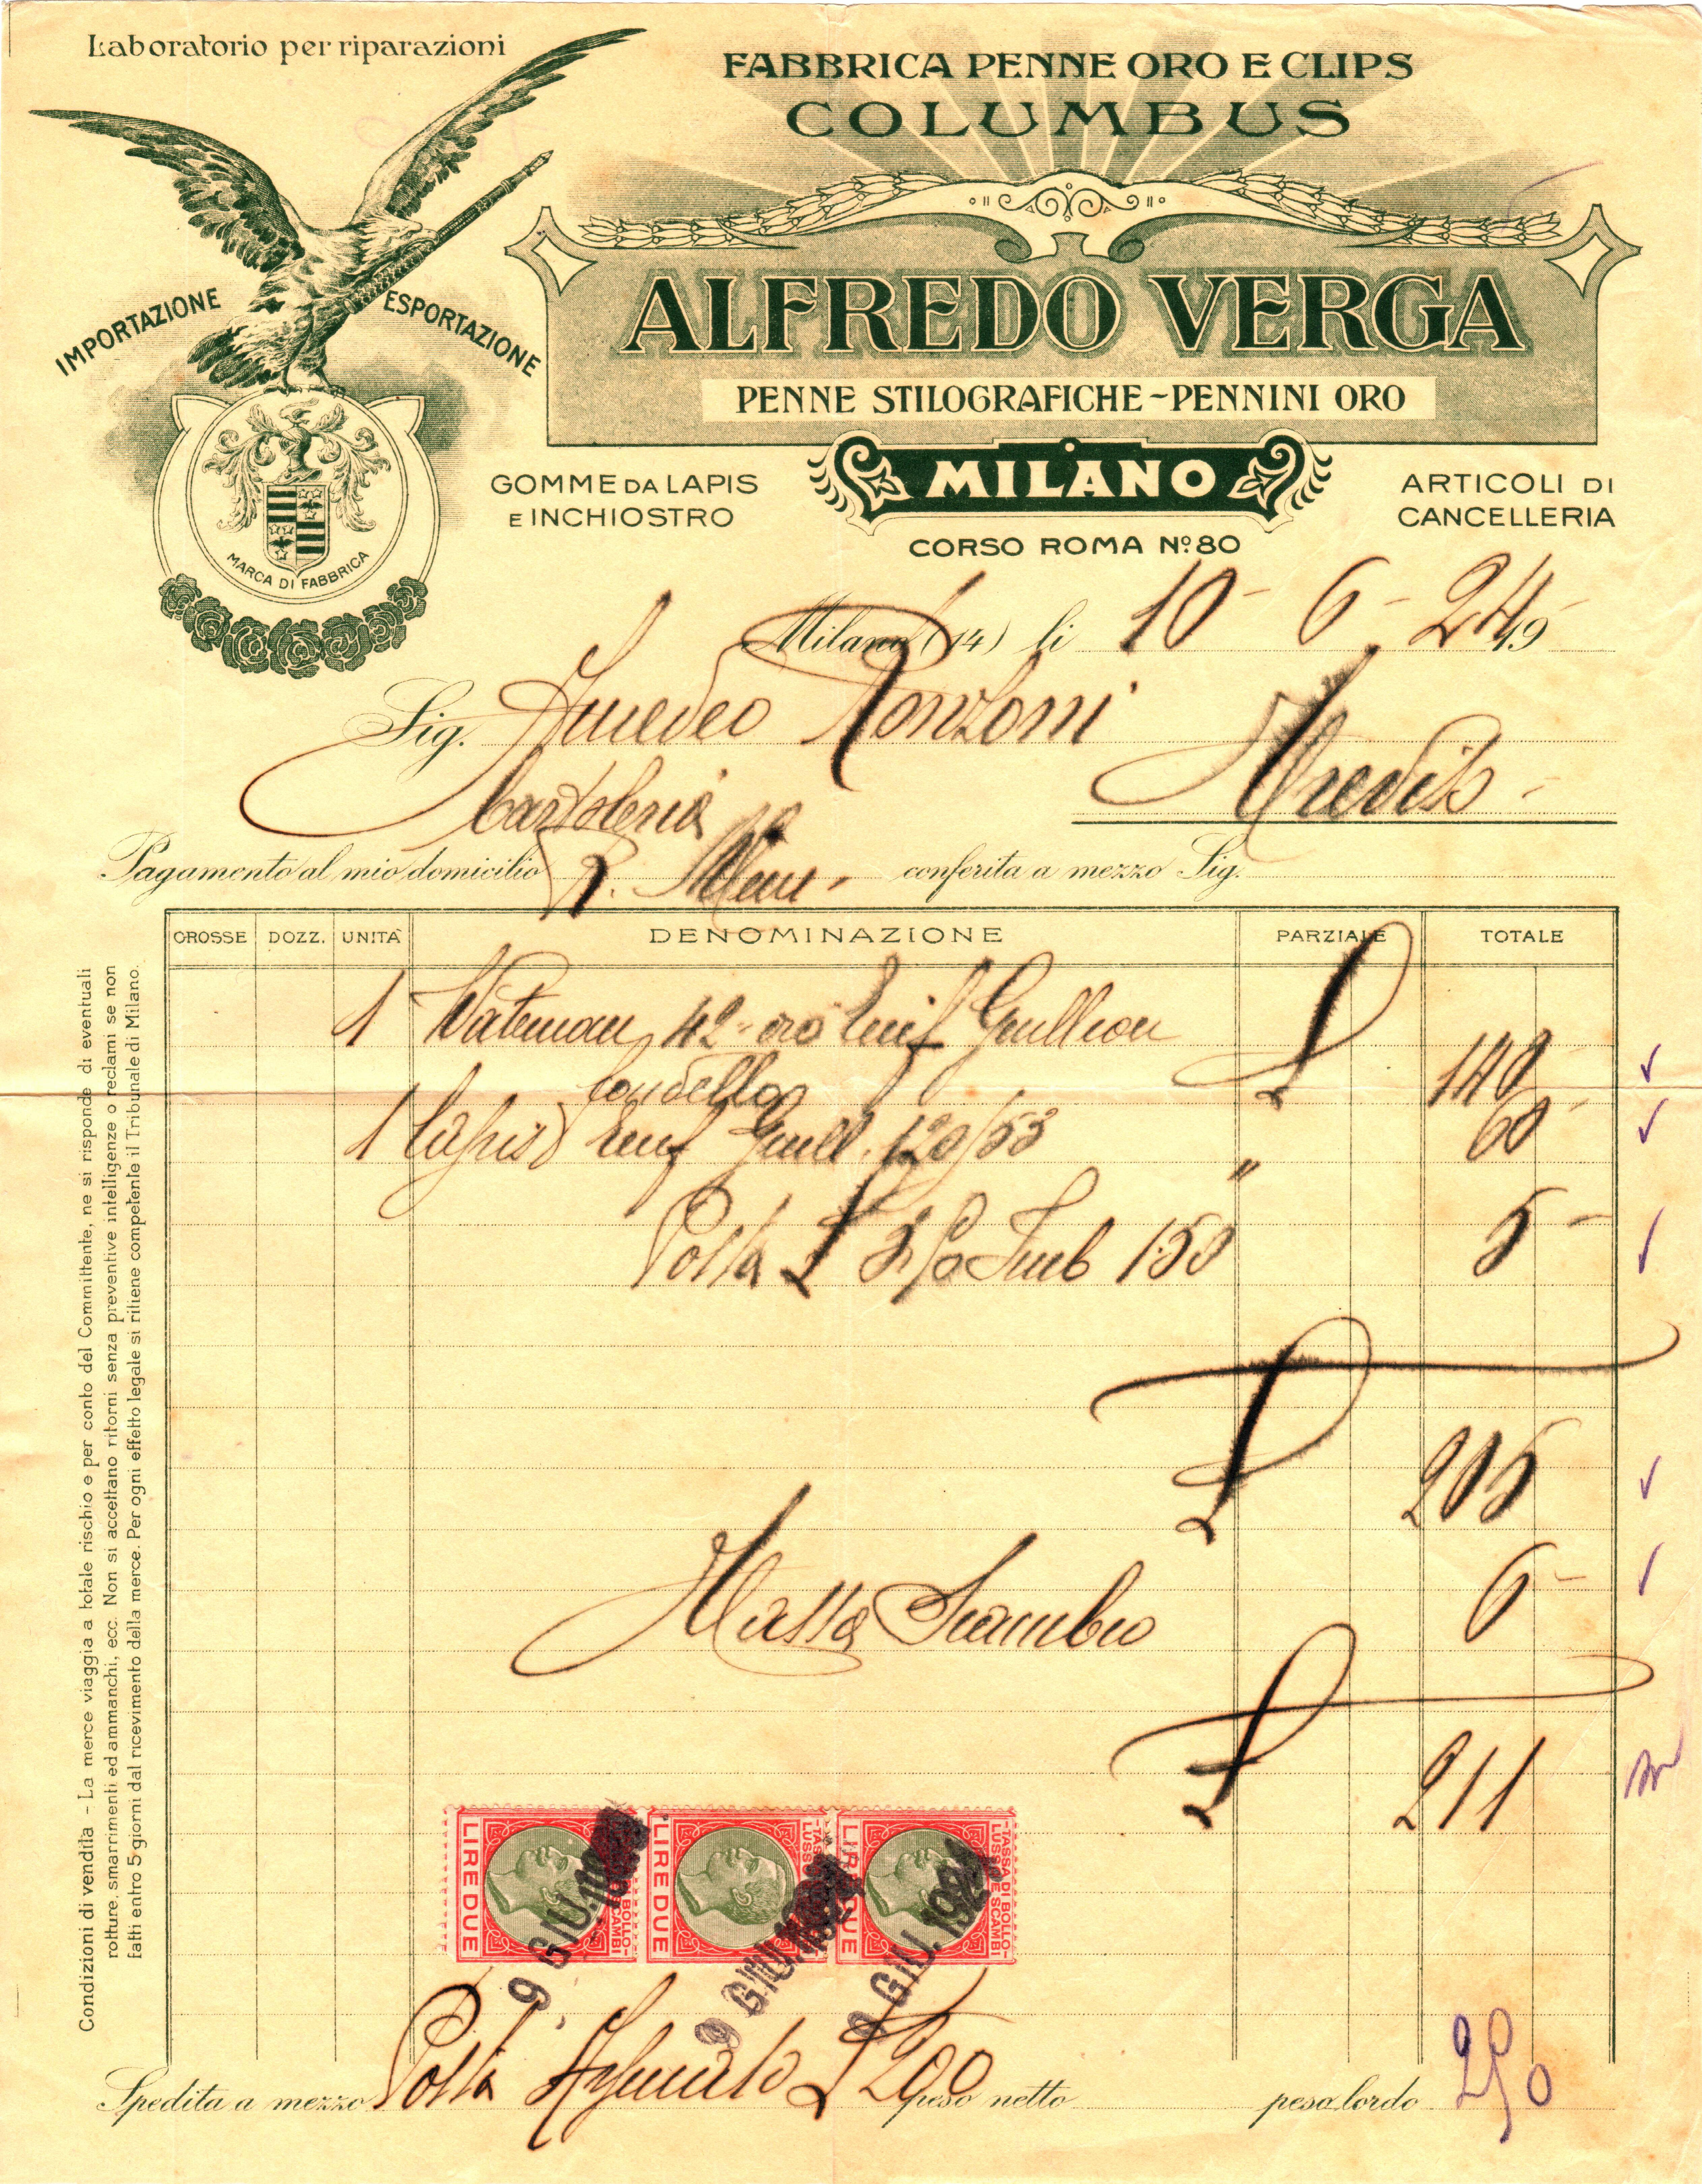 Laboratorio per riparazioni
FABBRICA PENNE ORO E CLIPS
COLUMBUS
IMPORTAZIONE
ESPORTAZIONE
ALFREDO VERGA
PENNE STILOGRAFICHE-PENNINI ORO
MILANO
GOMME DA LAPIS
E INCHIOSTRO
ARTICOLI DI
CANCELLERIA
CORSO ROMA Nº 80
MARCA DI FABBRICA
Milano (14) li 10-6-24 19
Sig. Amedeo Ronzoni
Cartoleria
Pagamento al mio domicilio conferita a mezzo Sig.
GROSSE DOZZ. UNITÀ DENOMINAZIONE PARZIALE TOTALE
1 Waterman 42 oro Guillon £ 140
Cordello
1 Lapis Guill. 120/53 " 60
Posta £ 3.50 1.50 5
£ 205
Tassa Scambio 6
£ 211
LIRE DUE
TASSA DI BOLLO
LUSSO E SCAMBI
9 GIU. 1924
LIRE DUE
9 GIU. 1924
LIRE DUE
TASSA DI BOLLO
LUSSO E SCAMBI
9 GIU. 1924
Spedita a mezzo Posta £ 200 peso netto peso lordo 250
Condizioni di vendita - La merce viaggia a totale rischio e per conto del Committente, ne si risponde di eventuali
rotture, smarrimenti ed ammanchi, ecc. Non si accettano ritorni senza preventive intelligenze o reclami se non
fatti entro 5 giorni dal ricevimento della merce. Per ogni effetto legale si ritiene competente il Tribunale di Milano.